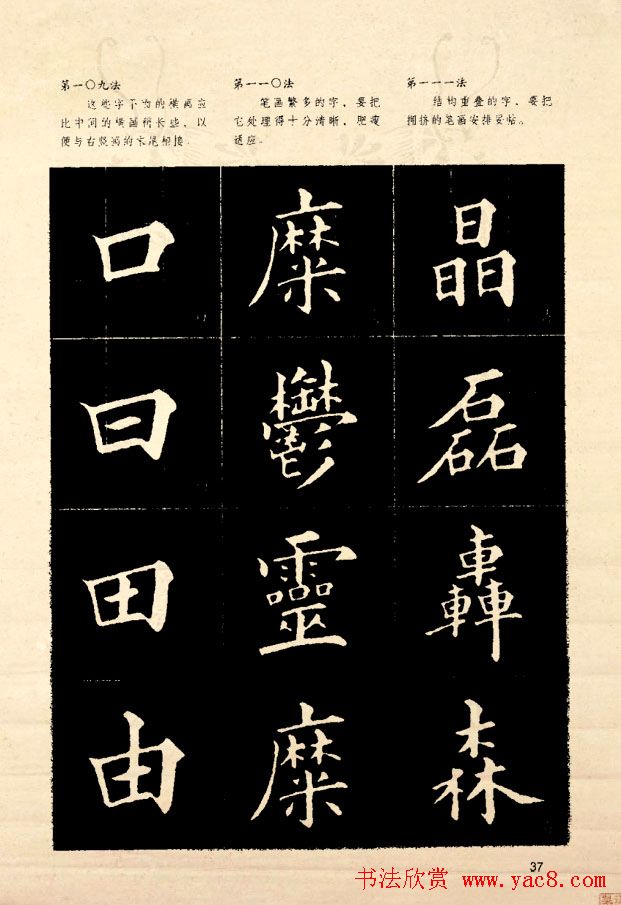 第一〇九法
这些字下面的横画应
比中间的横画稍长些，以
便与右竖画的末尾相接。
第一一〇法
笔画繁多的字，要把
它处理得十分清晰，肥瘦
适应。
第一一一法
结构重叠的字，要把
拥挤的笔画安排妥帖。
口 糜 晶
曰 鬱 磊
田 靈 轟
由 糜 森
37
书法欣赏 www.yac8.com